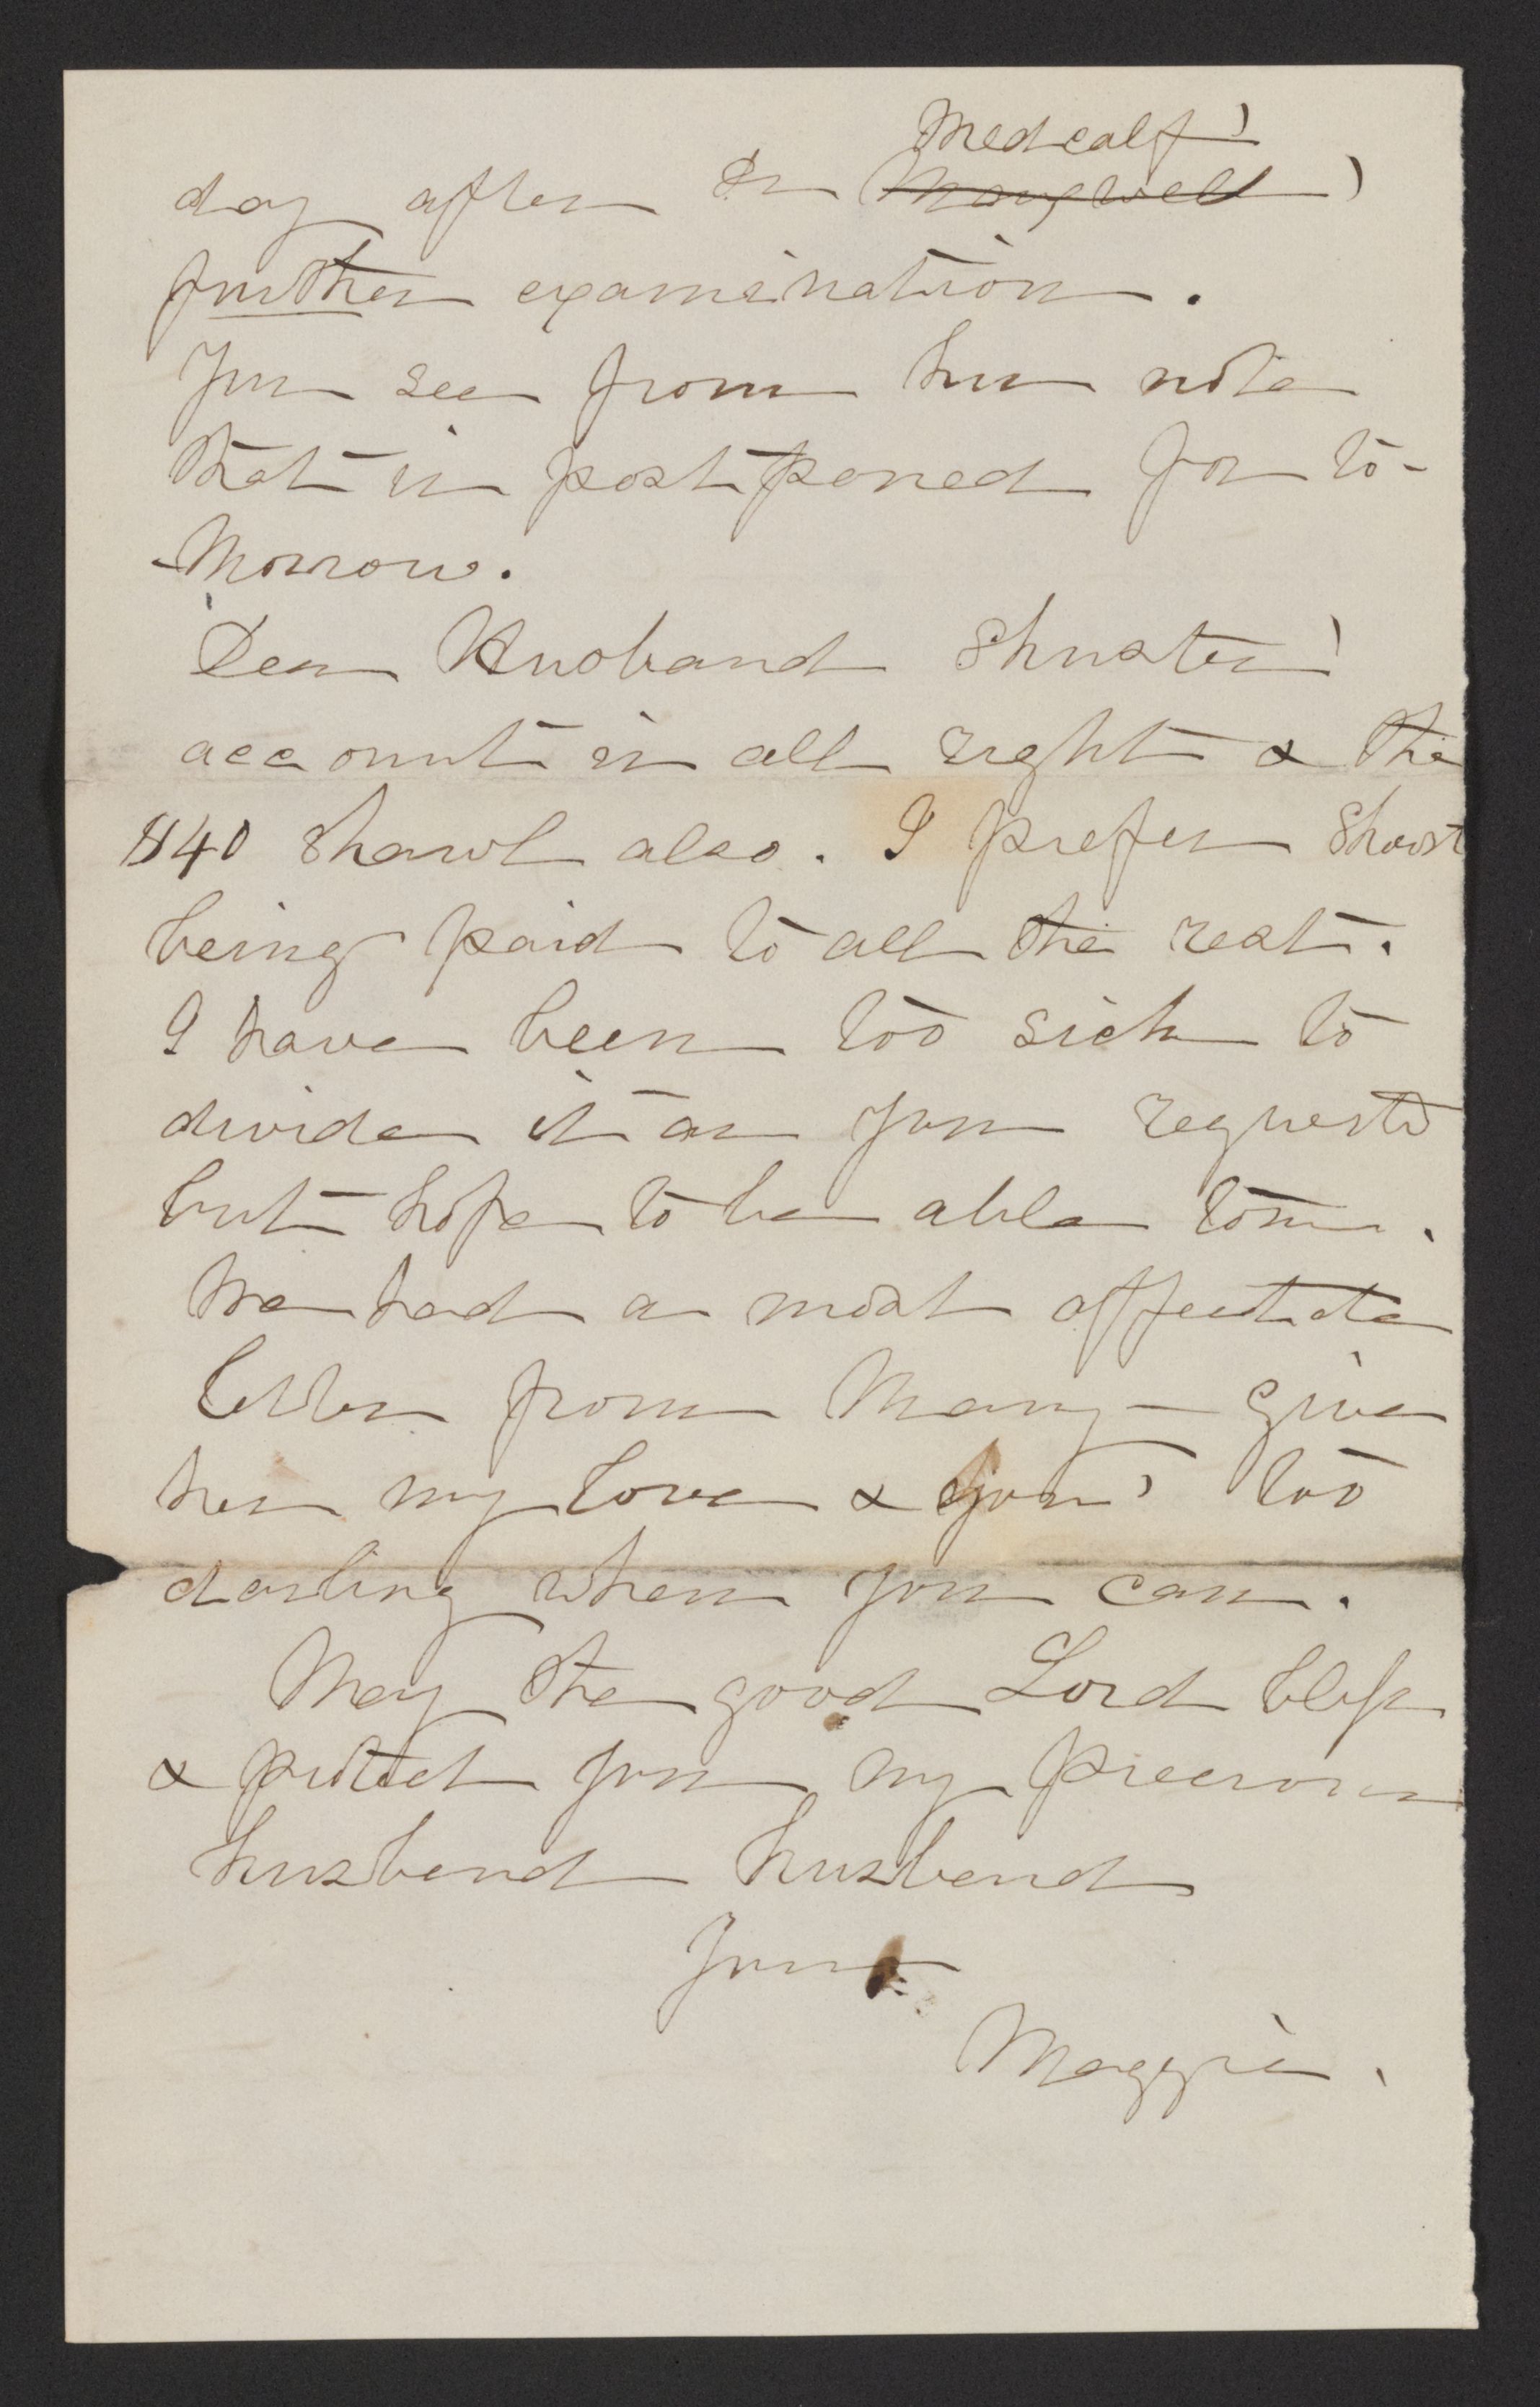 Medcalf's
day after Dr Maxwell's
further examination.
You see from his note
that is postponed for to-
-morrow.
Dear Husband Shuster's
account is all right & the
$40 shawl also. I prefer
being paid to all the rest.
I have been too sick to
divide it as you request'd
but hope to be able to
We had a most affect'ate
letter from Mary - give
her my love & your's too
darling when you can.
May the good Lord bless
& protect you my precious
husband husband
Your
Maggie.